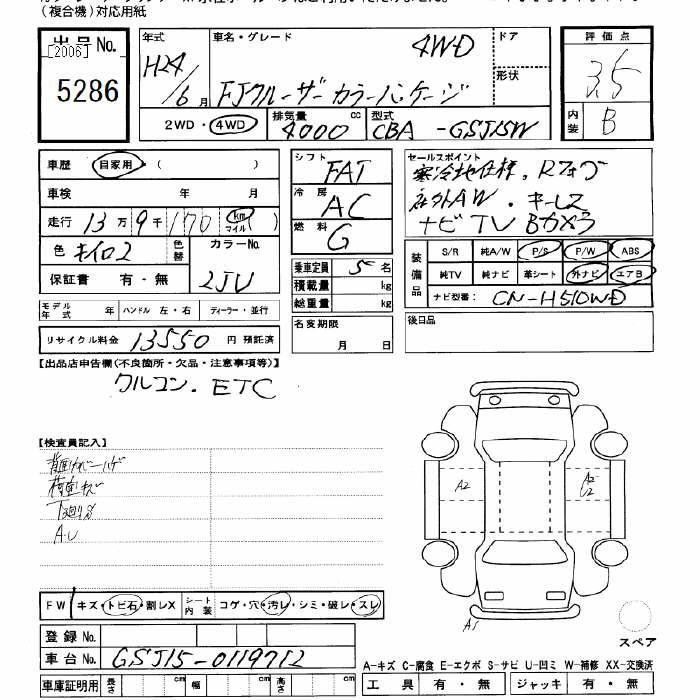 (複合機)対応用紙
出品No.
[2006]
5286
年式
H24/6月
車名・グレード
4WD
FJクルーザー カラーパッケージ
ドア
形状
2WD・4WD
排気量
4000 cc
型式
CBA-GSJ15W
評価点
3.5
内装
B
車歴 自家用・( )
車検 年 月
走行 13万9千170 km マイル( )
色 キイロ2
色替
カラーNo.
2JU
保証書 有・無
モデル年式 年
ハンドル 左・右
ディーラー・並行
リサイクル料金 13550 円 預託済
シフト FAT
冷房 AC
燃料 G
乗車定員 5 名
積載量 kg
総重量 kg
名変期限
月 日
セールスポイント
寒冷地仕様、Rフォグ
社外AW、キーレス
ナビ TV Bカメラ
装備品
S/R 純A/W P/S P/W ABS
純TV 純ナビ 革シート 外ナビ エアB
ナビ型番: CN-H510WD
後日品
【出品店申告欄(不良箇所・欠品・注意事項等)】
クルコン、ETC
【検査員記入】
荷室キズ
下廻りS
A・U
A2
A2
U2
A1
FW キズ・トビ石・割レX
シート内装 コゲ・穴・汚レ・シミ・破レ・スレ
登録No.
車台No. GSJ15-0119712
車庫証明用 長さ cm 幅 cm 高さ cm
スペア
A-キズ C-腐食 E-エクボ S-サビ U-凹ミ W-補修 XX-交換済
工具 有・無 ジャッキ 有・無